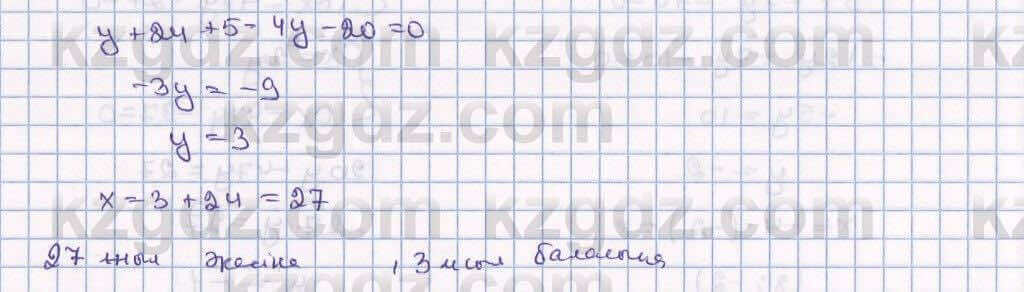 y + 24 + 5 - 4y - 20 = 0
-3y = -9
y = 3
x = 3 + 24 = 27
27 жыл , 3 жыл баласына
kzgdz.com
kzgdz.com
kzgdz.com